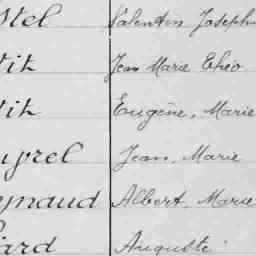 stel Valentin Joseph
tit Jean Marie Théo
tit Eugène, Marie
yrel Jean, Marie
ynaud Albert, Marie
ard Auguste